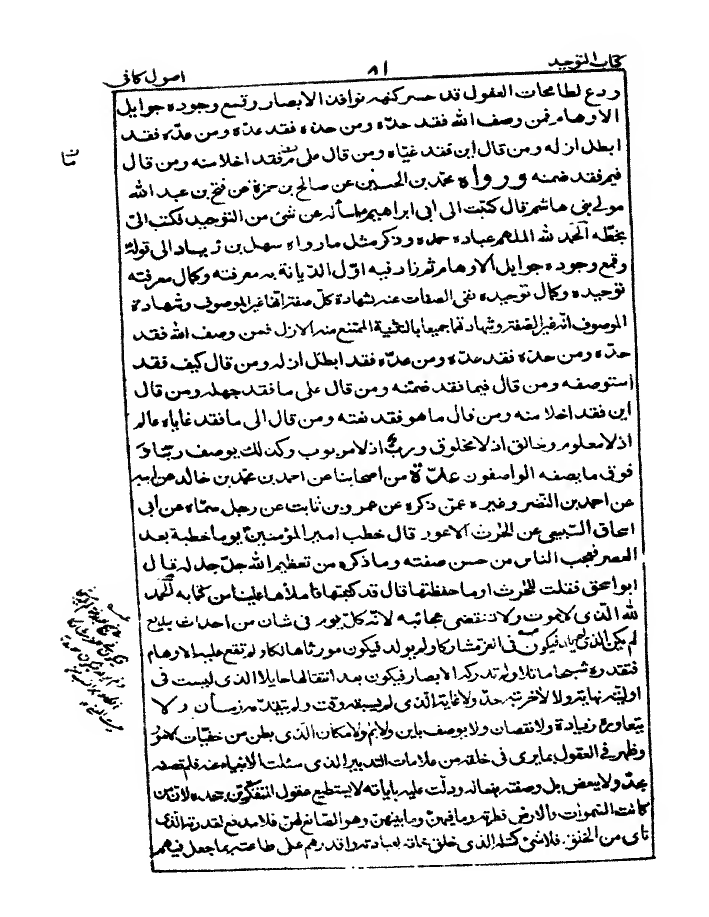 كتاب التوحيد
٨١
اصول كافى
ردع لطامحات العقول قد حسر كنهه نوافذ الابصار وقمع وجوده جوايل
الاوهام فمن وصف الله فقد حدّه ومن حدّه فقد عدّه ومن عدّه فقد
ابطل ازله ومن قال اين فقد غيّاه ومن قال على م فقد اخلا منه ومن قال
فيم فقد ضمنه ورواه محمّد بن الحسين عن صالح بن حمزة عن فتح بن عبد الله
مولى بنى هاشم قال كتبت الى ابى ابراهيم ع اساله عن شئ من التوحيد فكتب الىّ
بخطّه الحمد لله الملهم عباده حمده وذكر مثل ما رواه سهل بن زياد الى قوله
وقمع وجوده جوايل الاوهام ثم زاد فيه اوّل الدّيانة به معرفته وكمال معرفته
توحيده وكمال توحيده نفى الصفات عنه بشهادة كلّ صفة انّها غير الموصوف وشهادة
الموصوف انّه غير الصفة وشهادتهما جميعا بالتثنية الممتنع منه الازل فمن وصف الله فقد
حدّه ومن حدّه فقد عدّه ومن عدّه فقد ابطل ازله ومن قال كيف فقد
استوصفه ومن قال فيما فقد ضمّنه ومن قال على ما فقد جهله ومن قال
اين فقد اخلا منه ومن قال ما هو فقد نعته ومن قال الى ما فقد غاياه عالم
اذ لا معلوم وخالق اذ لا مخلوق وربّ اذ لا مربوب وكذلك يوصف ربّنا و
فوق ما يصفه الواصفون عدّة من اصحابنا عن احمد بن محمّد بن خالد عن ابيه
عن احمد بن النضر وغيره عمّن ذكره عن عمرو بن ثابت عن رجل سمّاه عن أبى
اسحاق السّبيعى عن الحرث الاعور قال خطب امير المؤمنين يوما خطبة بعد
العصر فعجب الناس من حسن صفته وما ذكره من تعظيم الله جلّ جلاله قال
ابو اسحق فقلت للحرث اوما حفظتها قال قد كتبتها فاملاها علينا من كتابه الحمد
لله الّذى لا يموت ولا تنقضى عجائبه لانّه كلّ يوم فى شان من احداث بديع
لم يكن الّذى لم يلد فيكون فى العزّ مشاركا ولم يولد فيكون موروثا هالكا ولم تقع عليه الاوهام
فتقدره شبحا ماثلا ولم تدركه الابصار فيكون بعد انتقالها حايلا الّذى ليست فى
اوليّته نهاية ولا لآخريّته حدّ ولا غاية الّذى لم يسبقه وقت ولم يتقدّمه زمان ولا
يتعاوره زيادة ولا نقصان ولا يوصف باين ولا بم ولا مكان الّذى بطن من خفيّات الامور
وظهر فى العقول بما يرى فى خلقه من علامات التدبير الّذى سئلت الانبياء عنه فلم تصفه
بحدّ ولا ببعض بل وصفته بفعاله ودلّت عليه باياته لا يستطيع عقول المتفكّرين جحده لانّ من
كانت السّموات والارض فطرته وما فيهنّ وما بينهنّ وهو الصّانع لهنّ فلا مدفع لقدرته الّذى
نأى من الخلق فلا شئ كمثله الّذى خلق خلقه لعبادته واقدرهم على طاعته بما جعل فيهم